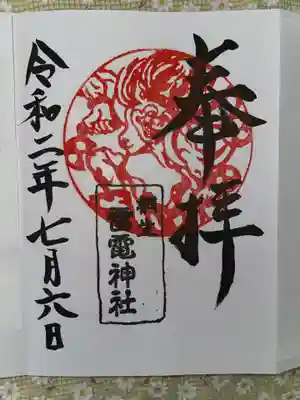 奉拝
雷電神社
令和二年七月六日